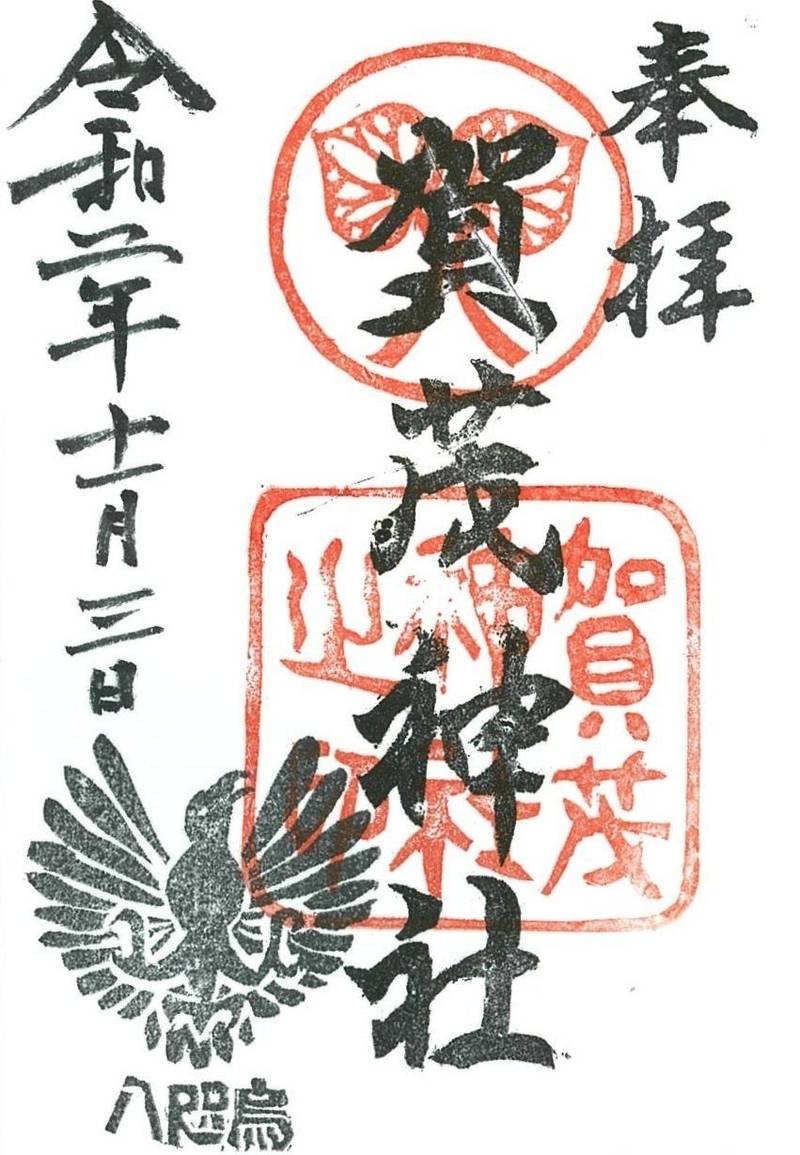 奉拝
賀茂神社
賀茂
神社
之印
令和二年十一月三日
八咫烏